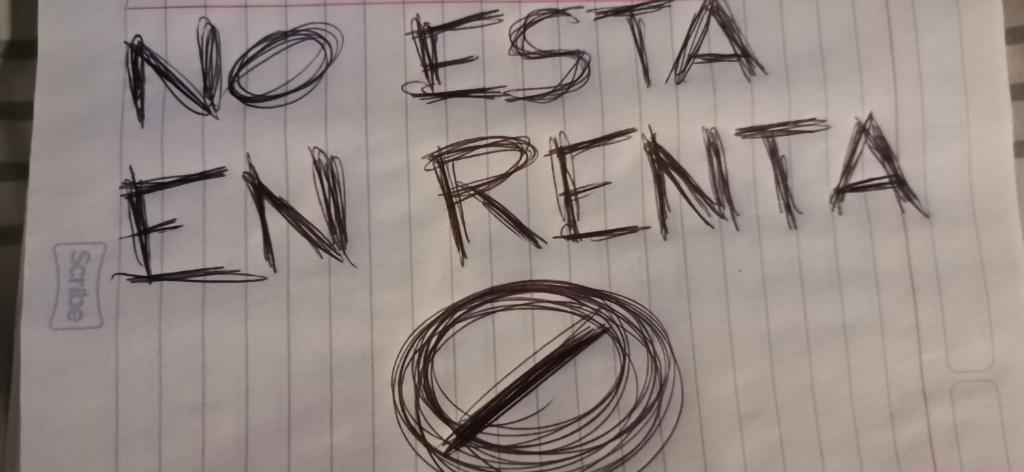 NO ESTA
EN RENTA
Scribe